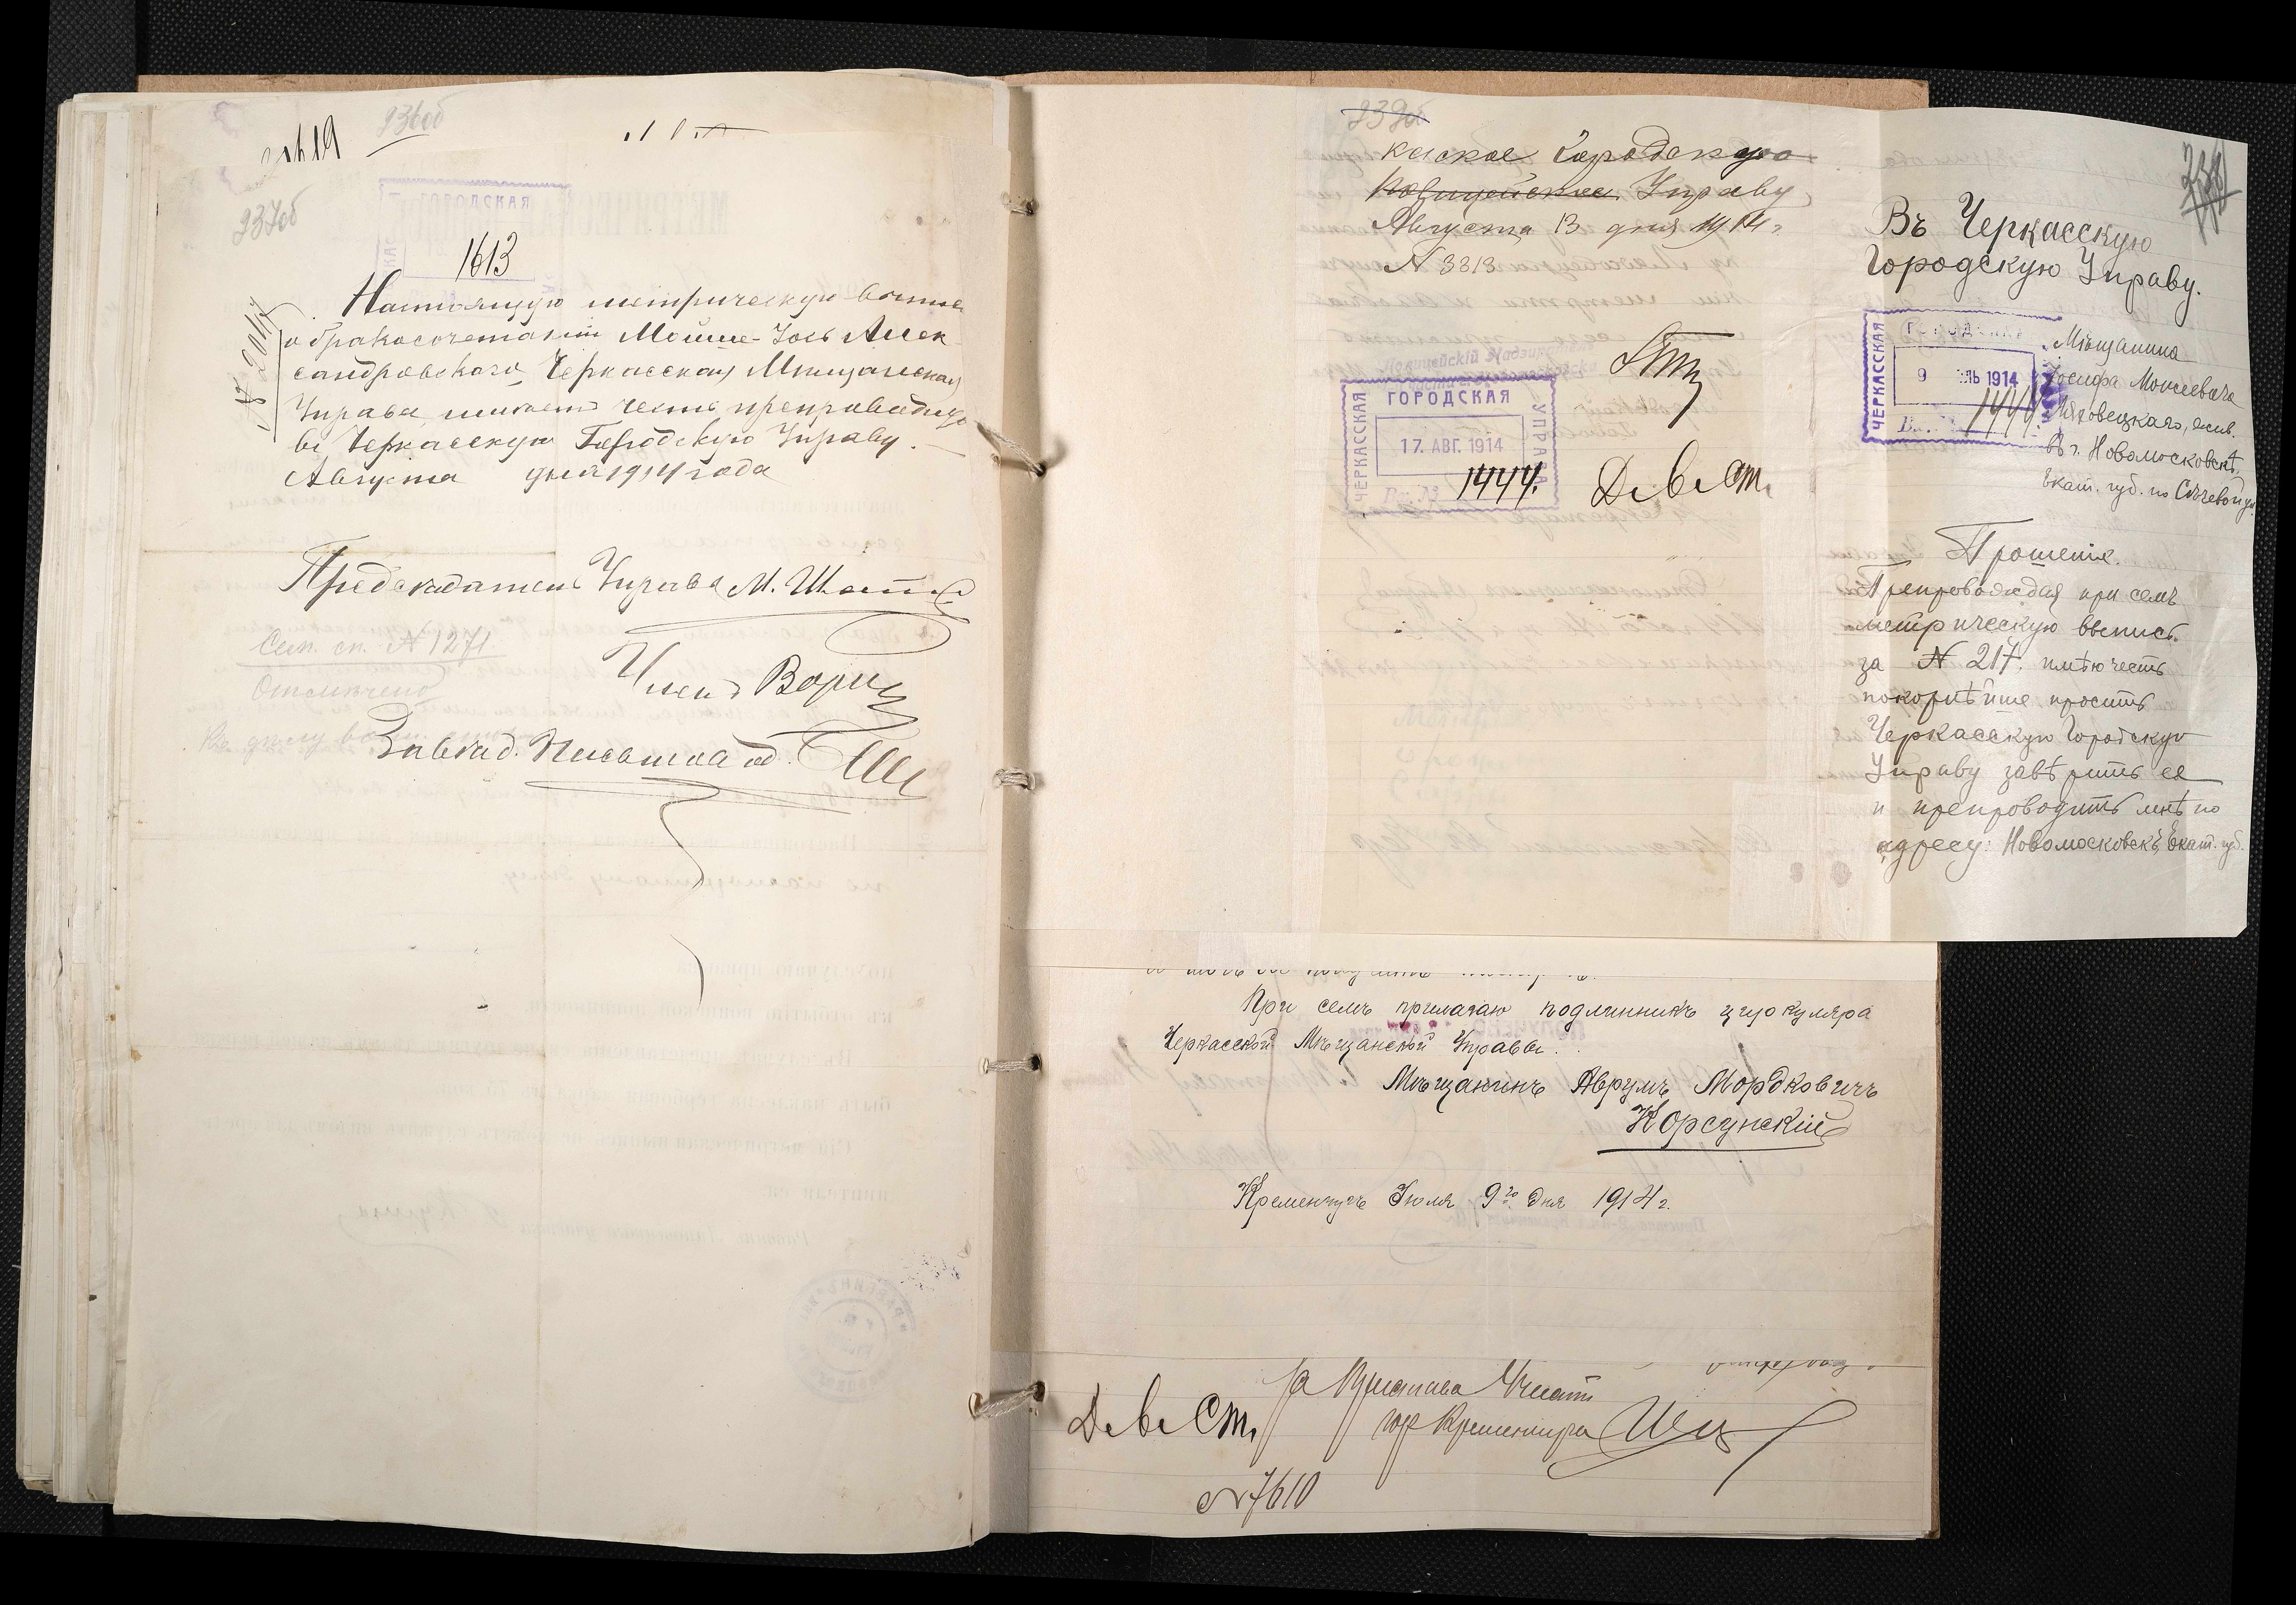 236об
237об
ГОРОДСКАЯ
1613
Настоящую метрическую выпись
о бракосочетаніи Мойше-Іось Алек
сандровскаго, Черкасская Мѣщанская
Управа, имѣетъ честь препроводить
въ Черкасскую Городскую Управу.
Августа дня 1914 года
Предсѣдатель Управы М.
Сем. сп. № 1271.
Отмѣчено
Членъ
Завѣд. Письмовод.
Городскую
Управу
Августа 13 дня 1914 г.
№ 3313
ЧЕРКАССКАЯ ГОРОДСКАЯ УПРАВА
17. АВГ. 1914
Вх. №
1444.
Въ Черкасскую
Городскую Управу.
ЧЕРКАССКАЯ
9 1914
1444.
Мѣщанина
Іосифа Моисеевича
въ г. Новомосковскѣ,
Екат. губ. по
Прошеніе.
Препровождая при семъ
метрическую выпись
за № 217. имѣю честь
покорнѣйше просить
Черкасскую Городскую
Управу завѣрить ее
и препроводить мнѣ по
адресу: Новомосковскъ, Екат. губ.
При семъ прилагаю подлинникъ циркуляра
Черкасской Мѣщанской Управы.
Мѣщанинъ Аврумъ Мордковичъ
Корсунскій
Кременчугъ Іюля 9го дня 1914 г.
За Пристава
гор Кременчуга
№ 7610